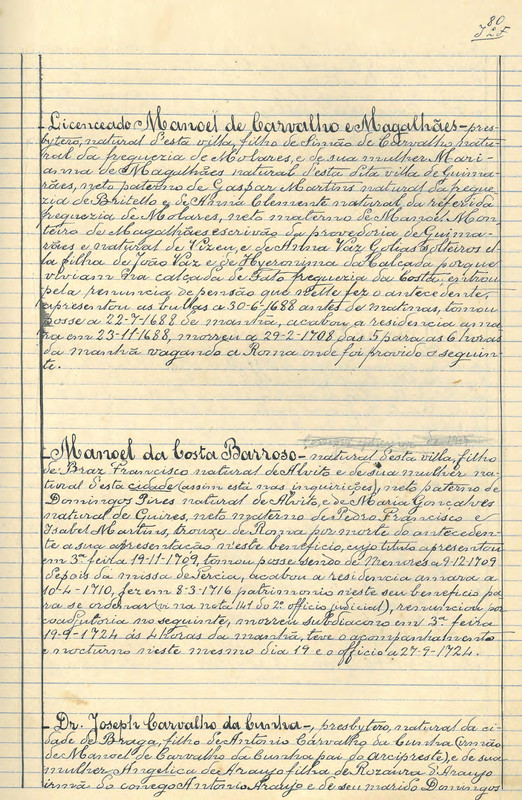 80
- Licenceado Manoel de Carvalho e Magalhães - pres-
bytero, natural d'esta villa, filho de Simão de Carvalho natu-
ral da freguezia de Molares, e de sua mulher Mari-
anna de Magalhães natural d'esta dita villa de Guima-
rães, neto paterno de Gaspar Martins natural da fregue-
zia de Britello e de Anna Clemente natural da referida
freguezia de Molares, neto materno de Manoel Mon-
teiro de Magalhães escrivão da provedoria de Guima-
rães e natural de Vizeu, e de Anna Vaz Golias solteiros el-
la filha de João Vaz e de Hyeronima da Calçada porque
viviam na calçada de Gato freguezia da Costa, entrou
pela renuncia de pensão que n'elle fez o antecedente,
apresentou as bullas a 30-6-1688 antes de matinas, tomou
posse a 22-7-1688 de manhã, acabou a residencia ama-
ra em 23-11-1688, morreu a 29-2-1708 das 5 para as 6 horas
da manhã vagando a Roma onde foi provido o seguin-
te.
- Manoel da Costa Barroso - natural d'esta villa, filho
de Braz Francisco natural de Alvito e de sua mulher na-
tural d'esta cidade (assim está nas inquirições), neto paterno de
Domingos Pires natural de Alvito, e de Maria Gonçalves
natural de Cuires, neto materno de Pedro Francisco e
Isabel Martins, trouxe de Roma por morte do anteceden-
te a sua apresentação n'este beneficio, cujo titulo apresentou
em 3ª feira 19-11-1709, tomou posse sendo de Menores a 9-12-1709
depois da missa de Tercia, acabou a residencia amara a
10-4-1710, fez em 8-3-1716 patrimonio n'este seu beneficio pa-
ra se ordenar (vi na nota 141 do 2º officio judicial), renunciou por
coadjutoria no seguinte, morreu subdiacono em 3ª feira
19-9-1724 ás 4 horas da manhã, teve o acompanhamento
e nocturno n'este mesmo dia 19 e o officio a 27-9-1724.
- Dr. Joseph Carvalho da Cunha -, presbytero, natural da ci-
dade de Braga, filho de Antonio Carvalho da Cunha (irmão
de Manoel de Carvalho da Cunha pai do arcipreste), e de sua
mulher Angelica de Araujo filha de Rozaura d'Araujo
irmã do conego Antonio Araujo e de seu marido Domingos